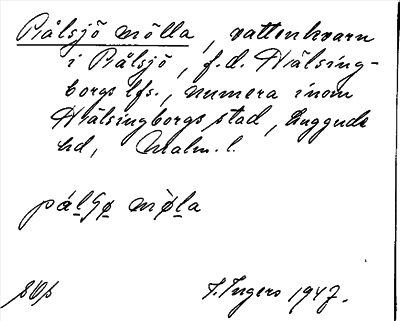 Pålsjö mölla, vattenkvarn
i Pålsjö, f.d. Hälsing-
borgs lfs., numera inom
Hälsingborgs stad, Luggude
hd, Malm. l.
mǿla
I. Ingers 1947.